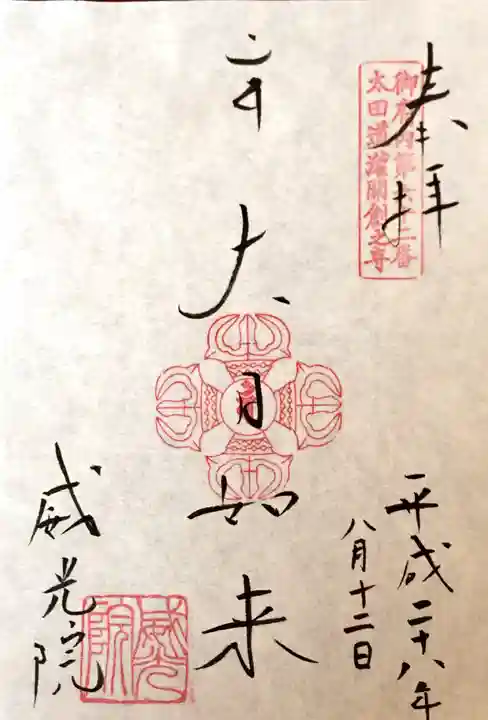 奉拝
御府内第六十二番
太田道灌開創之寺
大日如来
平成二十八年
八月十二日
威光院
威光院